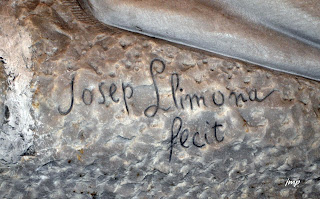 Josep Llimona
fecit
jmp